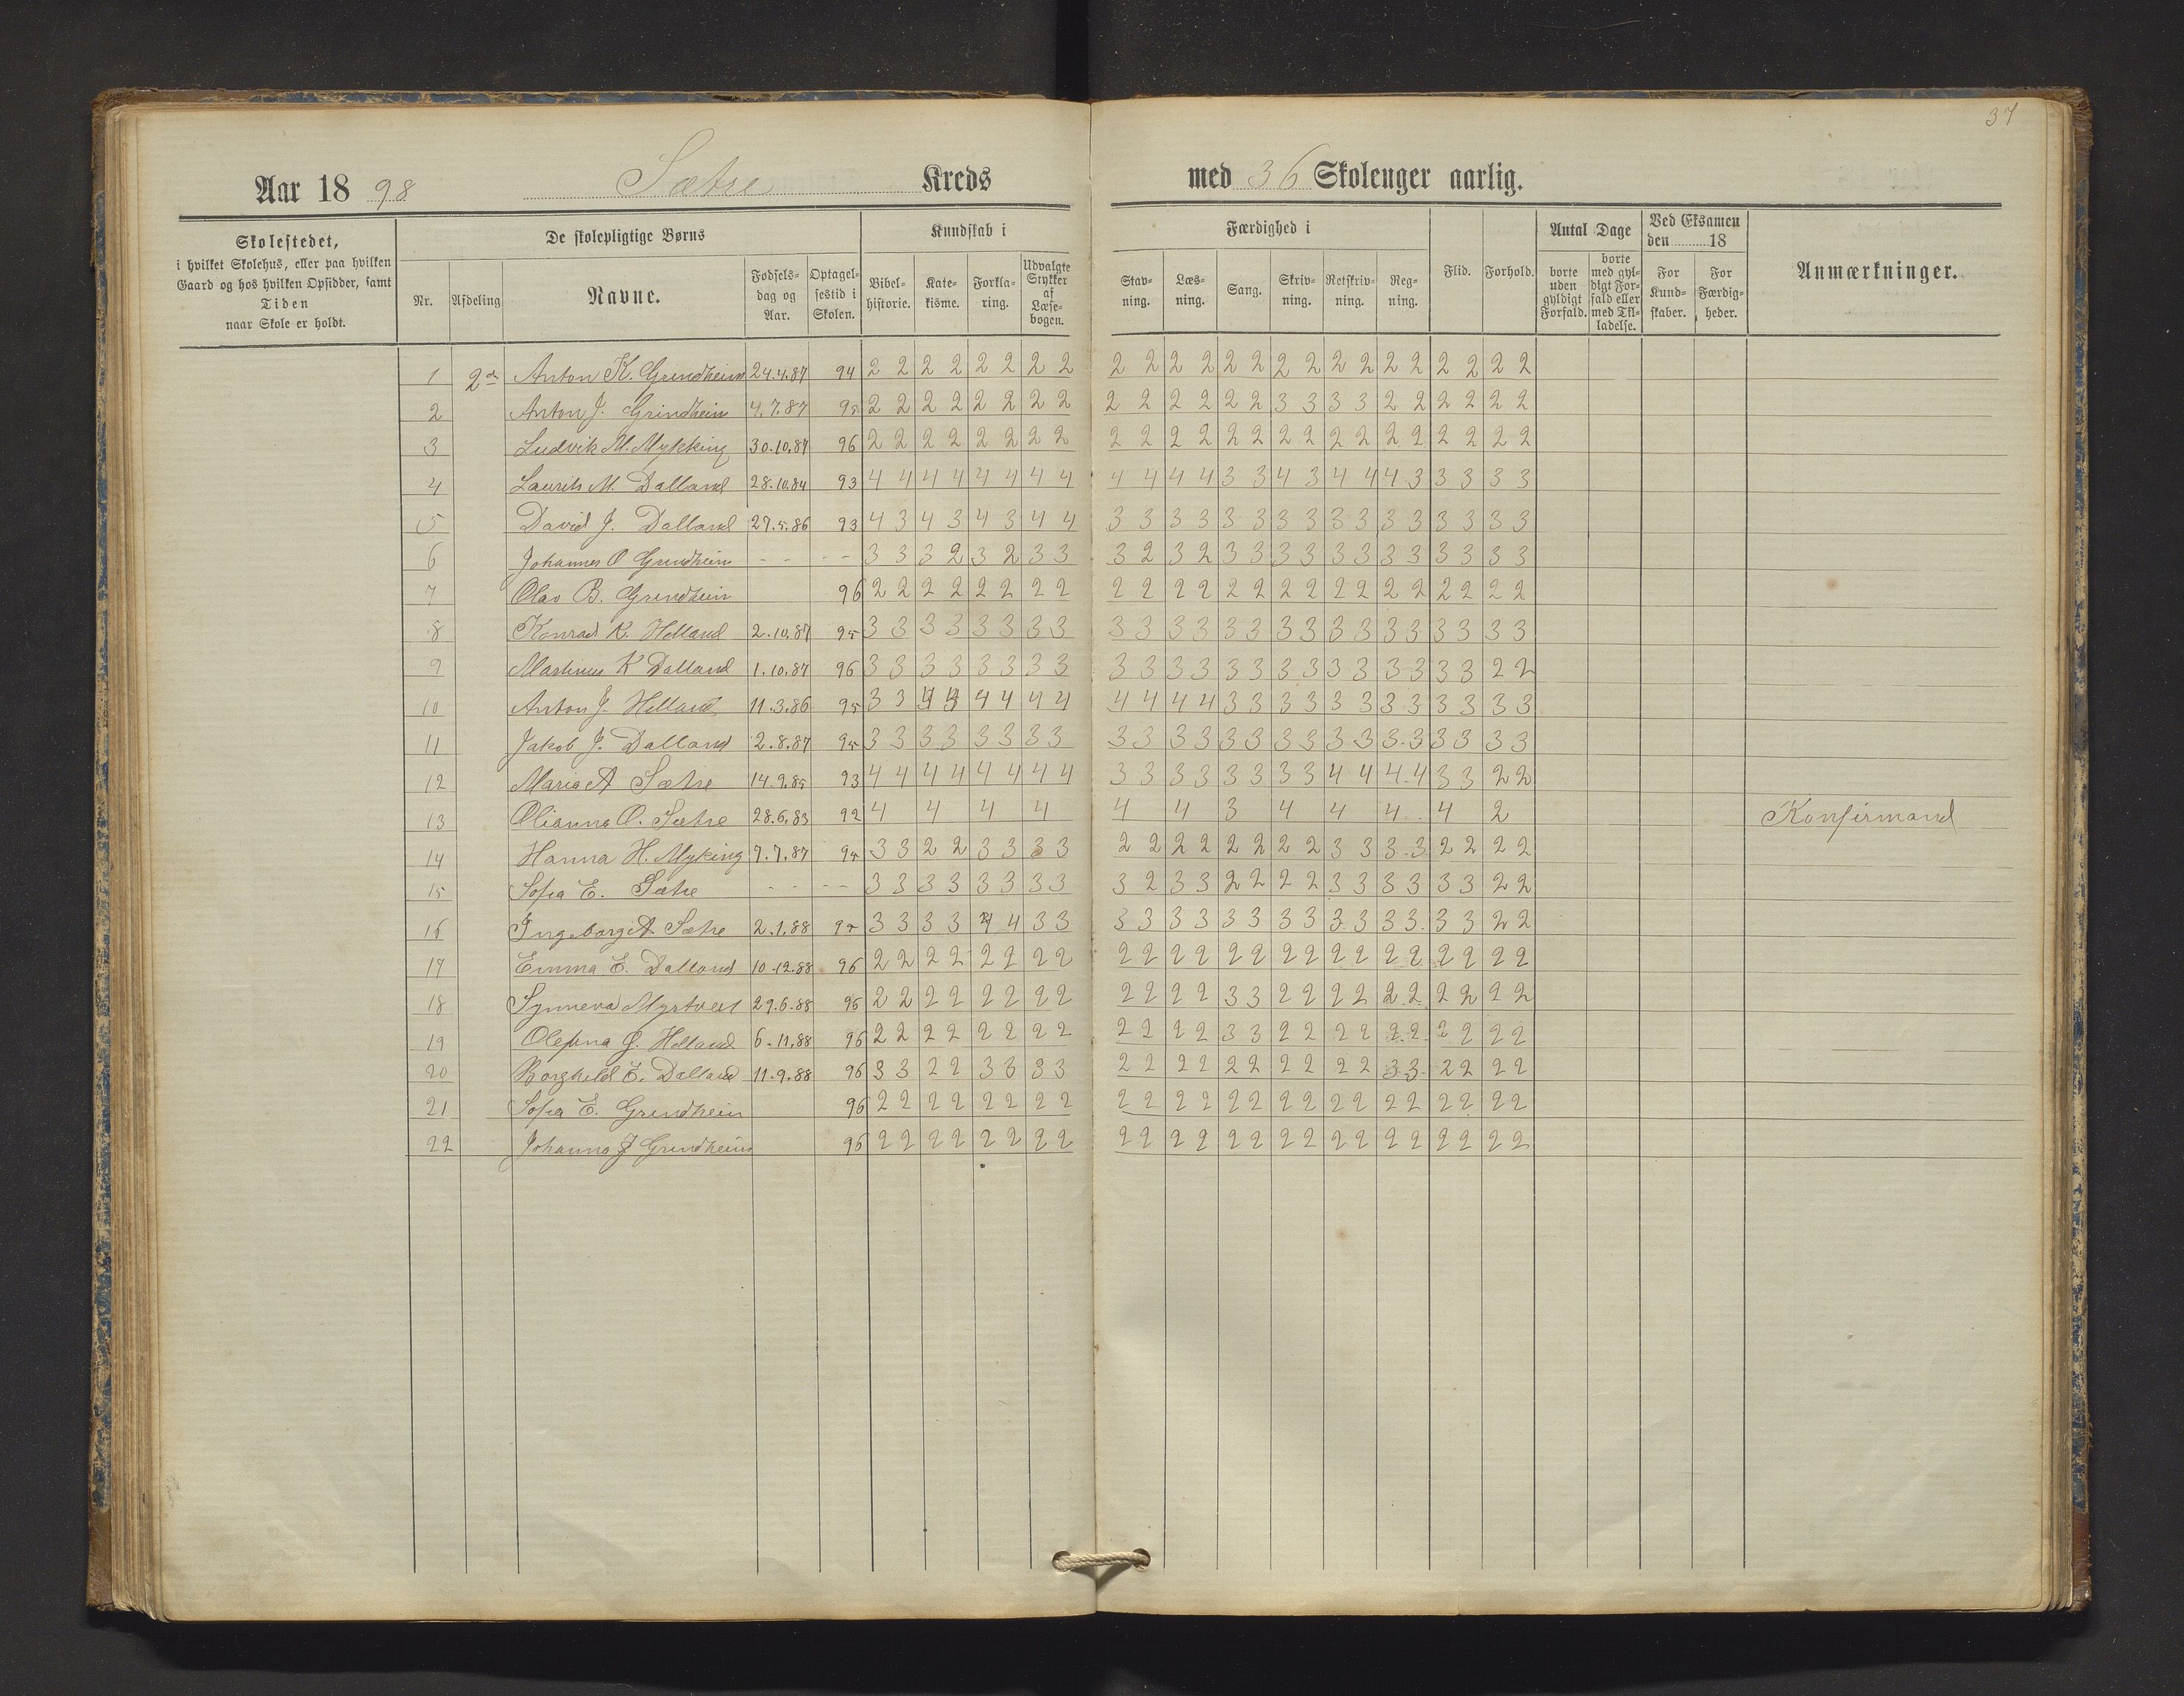 37
Aar 1898 Sætre Kreds med 36 Skoleuger aarlig.
Skolestedet, i hvilket Skolehus, eller paa hvilken Gaard og hos hvilken Opsidder, samt Tiden naar Skole er holdt.
De skolepligtige Børns
Nr. Afdeling Navne. Fødselsdag og Aar. Optagelsestid i Skolen.
Kundskab i
Bibelhistorie. Katekisme. Forklaring. Udvalgte Stykker af Læsebogen.
Færdighed i
Stavning. Læsning. Sang. Skrivning. Retskrivning. Regning.
Flid. Forhold.
Antal Dage
borte uden gyldigt Forfald. borte med gyldigt Forfald eller med Tilladelse.
Ved Eksamen den 18
For Kundskaber. For Færdigheder.
Anmærkninger.
1 2den Anton K. Grindheim 24.4.87 94 2 2 2 2 2 2 2 2 2 2 2 2 2 2 2 2 2 2 2 2 2 2 2 2
2 Anton J. Grindheim 4.7.87 95 2 2 2 2 2 2 2 2 2 2 2 2 2 2 3 3 3 3 2 2 2 2 2 2
3 Ludvik M. Mykking 30.10.87 96 2 2 2 2 2 2 2 2 2 2 2 2 2 2 2 2 2 2 2 2 2 2 2 2
4 Laurits M. Dalland 28.10.84 93 4 4 4 4 4 4 4 4 4 4 4 4 3 3 4 3 4 4 4 3 3 3 3 3
5 David J. Dalland 27.5.86 93 4 3 4 3 4 3 4 4 3 3 3 3 3 3 3 3 3 3 3 3 3 3 3 3
6 Johannes O Grindheim - - - - 3 3 3 2 3 2 3 3 3 2 3 2 3 3 3 3 3 3 3 3 3 3 3 3
7 Olav B. Grindheim 96 2 2 2 2 2 2 2 2 2 2 2 2 2 2 2 2 2 2 2 2 2 2 2 2
8 Konrad K. Helland 2.10.87 95 3 3 3 3 3 3 3 3 3 3 3 3 3 3 3 3 3 3 3 3 3 3 3 3
9 Martinus K Dalland 1.10.87 96 3 3 3 3 3 3 3 3 3 3 3 3 3 3 3 3 3 3 3 3 3 3 2 2
10 Anton J. Helland 11.3.86 95 3 3 4 4 4 4 4 4 4 4 4 4 3 3 3 3 3 3 3 3 3 3 3 3
11 Jakob J. Dalland 2.8.87 95 3 3 3 3 3 3 3 3 3 3 3 3 3 3 3 3 3 3 3 3 3 3 3 3
12 Maria A Sætre 14.9.85 93 4 4 4 4 4 4 4 4 3 3 3 3 3 3 3 3 4 4 4 4 3 3 2 2
13 Olianna O. Sætre 28.6.83 92 4 4 4 4 4 4 3 4 4 4 4 2 Konfirmand
14 Hanna H. Myking 7.7.87 95 3 3 2 2 3 3 3 3 2 2 2 2 2 2 2 2 3 3 3 3 2 2 2 2
15 Sofia E. Sætre - - - - 3 3 3 3 3 3 3 3 3 2 3 3 2 2 2 2 3 3 3 3 3 3 2 2
16 Ingeborg A Sætre 2.1.88 95 3 3 3 3 4 4 3 3 3 3 3 3 3 3 3 3 3 3 3 3 3 3 2 2
17 Emma E. Dalland 10.12.88 96 2 2 2 2 2 2 2 2 2 2 2 2 2 2 2 2 2 2 2 2 2 2 2 2
18 Synneva Myrtvedt 29.6.88 96 2 2 2 2 2 2 2 2 2 2 2 2 3 3 2 2 2 2 2 2 2 2 2 2
19 Olefina J. Helland 6.11.88 96 2 2 2 2 2 2 2 2 2 2 2 2 3 3 2 2 2 2 2 2 2 2 2 2
20 Borghild E. Dalland 11.9.88 96 3 3 2 2 3 3 3 3 2 2 2 2 2 2 2 2 2 2 3 3 2 2 2 2
21 Sofia E. Grindheim 96 2 2 2 2 2 2 2 2 2 2 2 2 2 2 2 2 2 2 2 2 2 2 2 2
22 Johanna J Grindheim 96 2 2 2 2 2 2 2 2 2 2 2 2 2 2 2 2 2 2 2 2 2 2 2 2